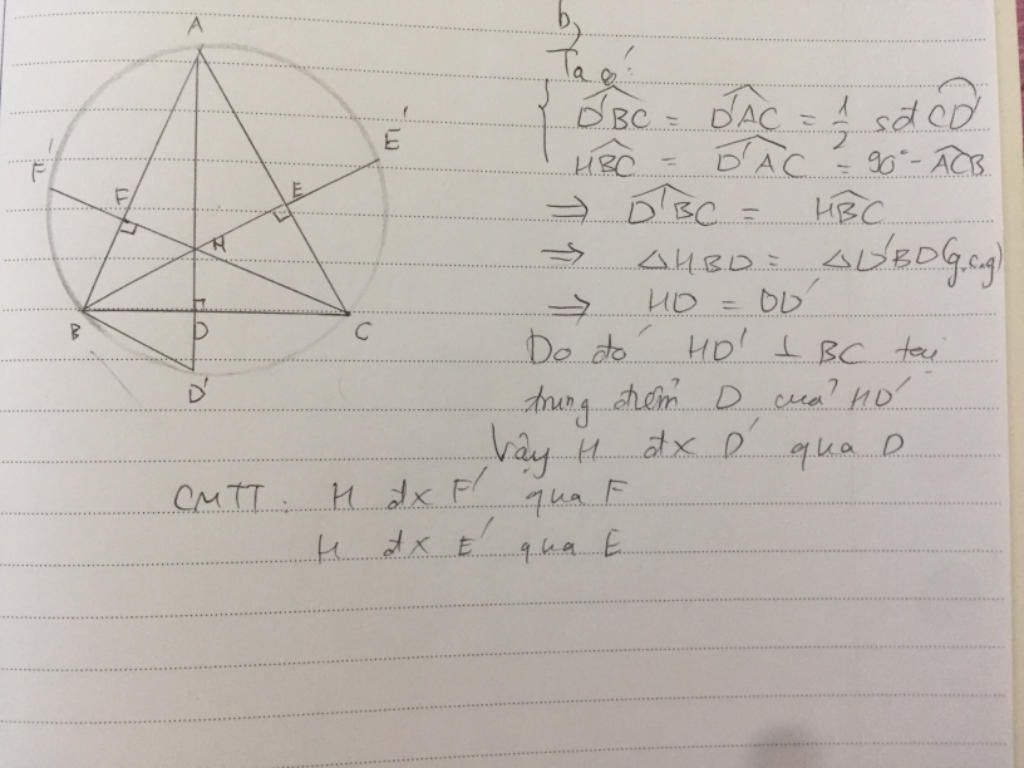 A
F'
E'
F
E
H
B
D
C
D'
b,
Ta có:
D'BC = D'AC = 1/2 sđ CD'
HBC = D'AC = 90° - ACB
⇒ D'BC = HBC
⇒ △HBD = △D'BD (g.c.g)
⇒ HD = DD'
Do đó HD' ⊥ BC tại
trung điểm D của HD'
Vậy H đx D' qua D
CMTT: H đx F' qua F
H đx E' qua E